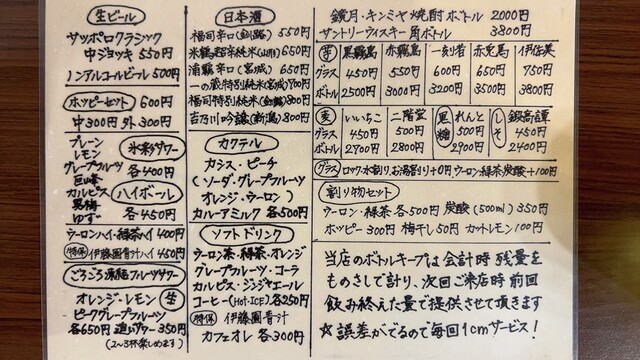 生ビール
サッポロクラシック
中ジョッキ 550円
ノンアルコールビール 500円
ホッピーセット 600円
中300円 外300円
氷彩サワー
プレーン
レモン
グレープフルーツ
巨峰
カルピス
男梅
ゆず
各400円
ハイボール
各450円
ウーロンハイ・緑茶ハイ 400円
特保 伊藤園青汁ハイ 450円
ごろごろ凍結フルーツサワー
オレンジ・レモン 生
ピークグレープフルーツ
各650円 追いサワー 350円
(2〜3杯楽しめます)
日本酒
福司辛口(釧路) 550円
米鶴超辛純米(山形) 650円
浦霞辛口(宮城) 650円
一の蔵特別純米(宮城) 700円
福司特別純米(釧路) 800円
吉乃川吟醸(新潟) 800円
カクテル
カシス・ピーチ
(ソーダ・グレープフルーツ
オレンジ・ウーロン)
カルーアミルク 各500円
ソフトドリンク
ウーロン茶・緑茶・オレンジ
グレープフルーツ・コーラ
カルピス・ジンジャエール
コーヒー(HOT・ICE) 各250円
特保 伊藤園青汁
カフェオレ 各300円
鏡月・キンミヤ焼酎ボトル 2000円
サントリーウィスキー角ボトル 3800円
芋 黒霧島 赤霧島 一刻者 赤兎馬 伊佐美
グラス 450円 550円 600円 650円 750円
ボトル 2500円 3000円 3200円 3500円 3800円
麦 いいちこ 二階堂 黒糖 れんと しそ 鍛高譚
グラス 450円 500円 500円 450円
ボトル 2700円 2800円 2900円 2400円
グラス ロック・水割り・お湯割り+0円 ウーロン・緑茶・炭酸+100円
割り物セット
ウーロン・緑茶 各500円 炭酸(500ml) 350円
ホッピー 300円 梅干し 50円 カットレモン 100円
当店のボトルキープは会計時残量を
ものさしで計り、次回ご来店時前回
飲み終えた量で提供させて頂きます
☆誤差がでるので毎回1cmサービス!